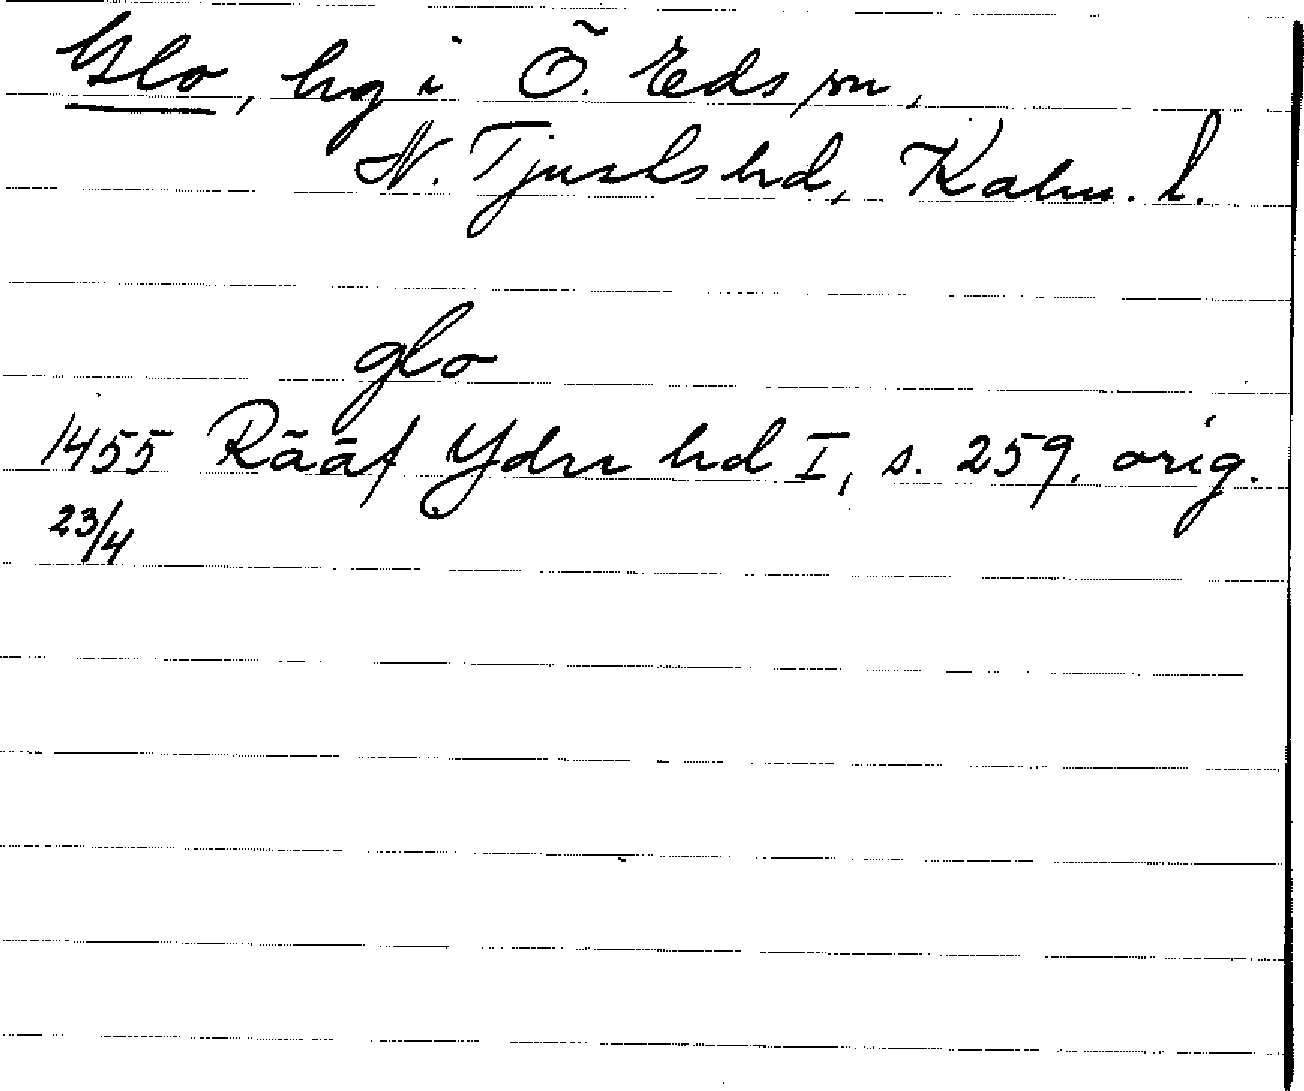 Glo, hg i Ö. Eds sn,
N. Tjusts hd, Kalm. l.
glo
1455 Rääf Ydre hd I, s. 259, orig.
23/4